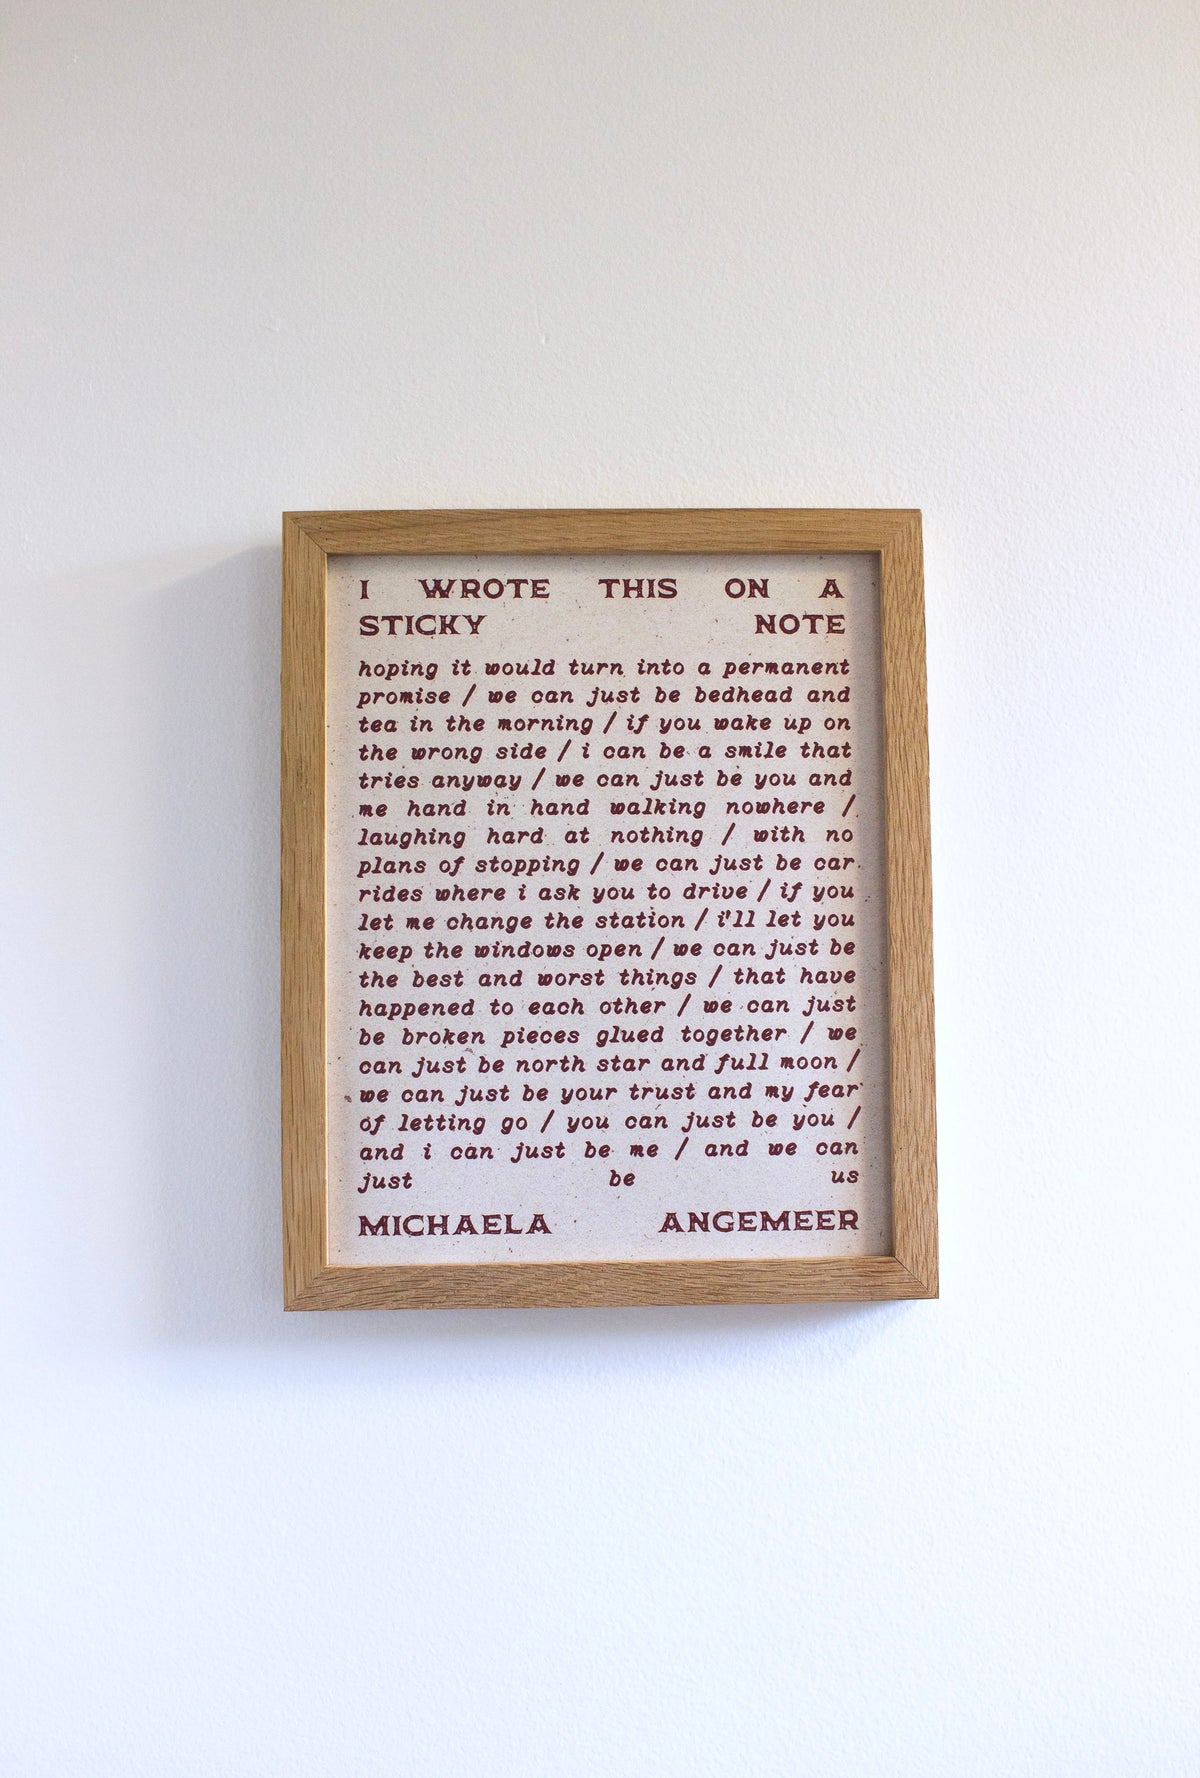 I WROTE THIS ON A
STICKY NOTE
hoping it would turn into a permanent
promise / we can just be bedhead and
tea in the morning / if you wake up on
the wrong side / i can be a smile that
tries anyway / we can just be you and
me hand in hand walking nowhere /
laughing hard at nothing / with no
plans of stopping / we can just be car
rides where i ask you to drive / if you
let me change the station / i'll let you
keep the windows open / we can just be
the best and worst things / that have
happened to each other / we can just
be broken pieces glued together / we
can just be north star and full moon /
we can just be your trust and my fear
of letting go / you can just be you /
and i can just be me / and we can
just be us
MICHAELA ANGEMEER